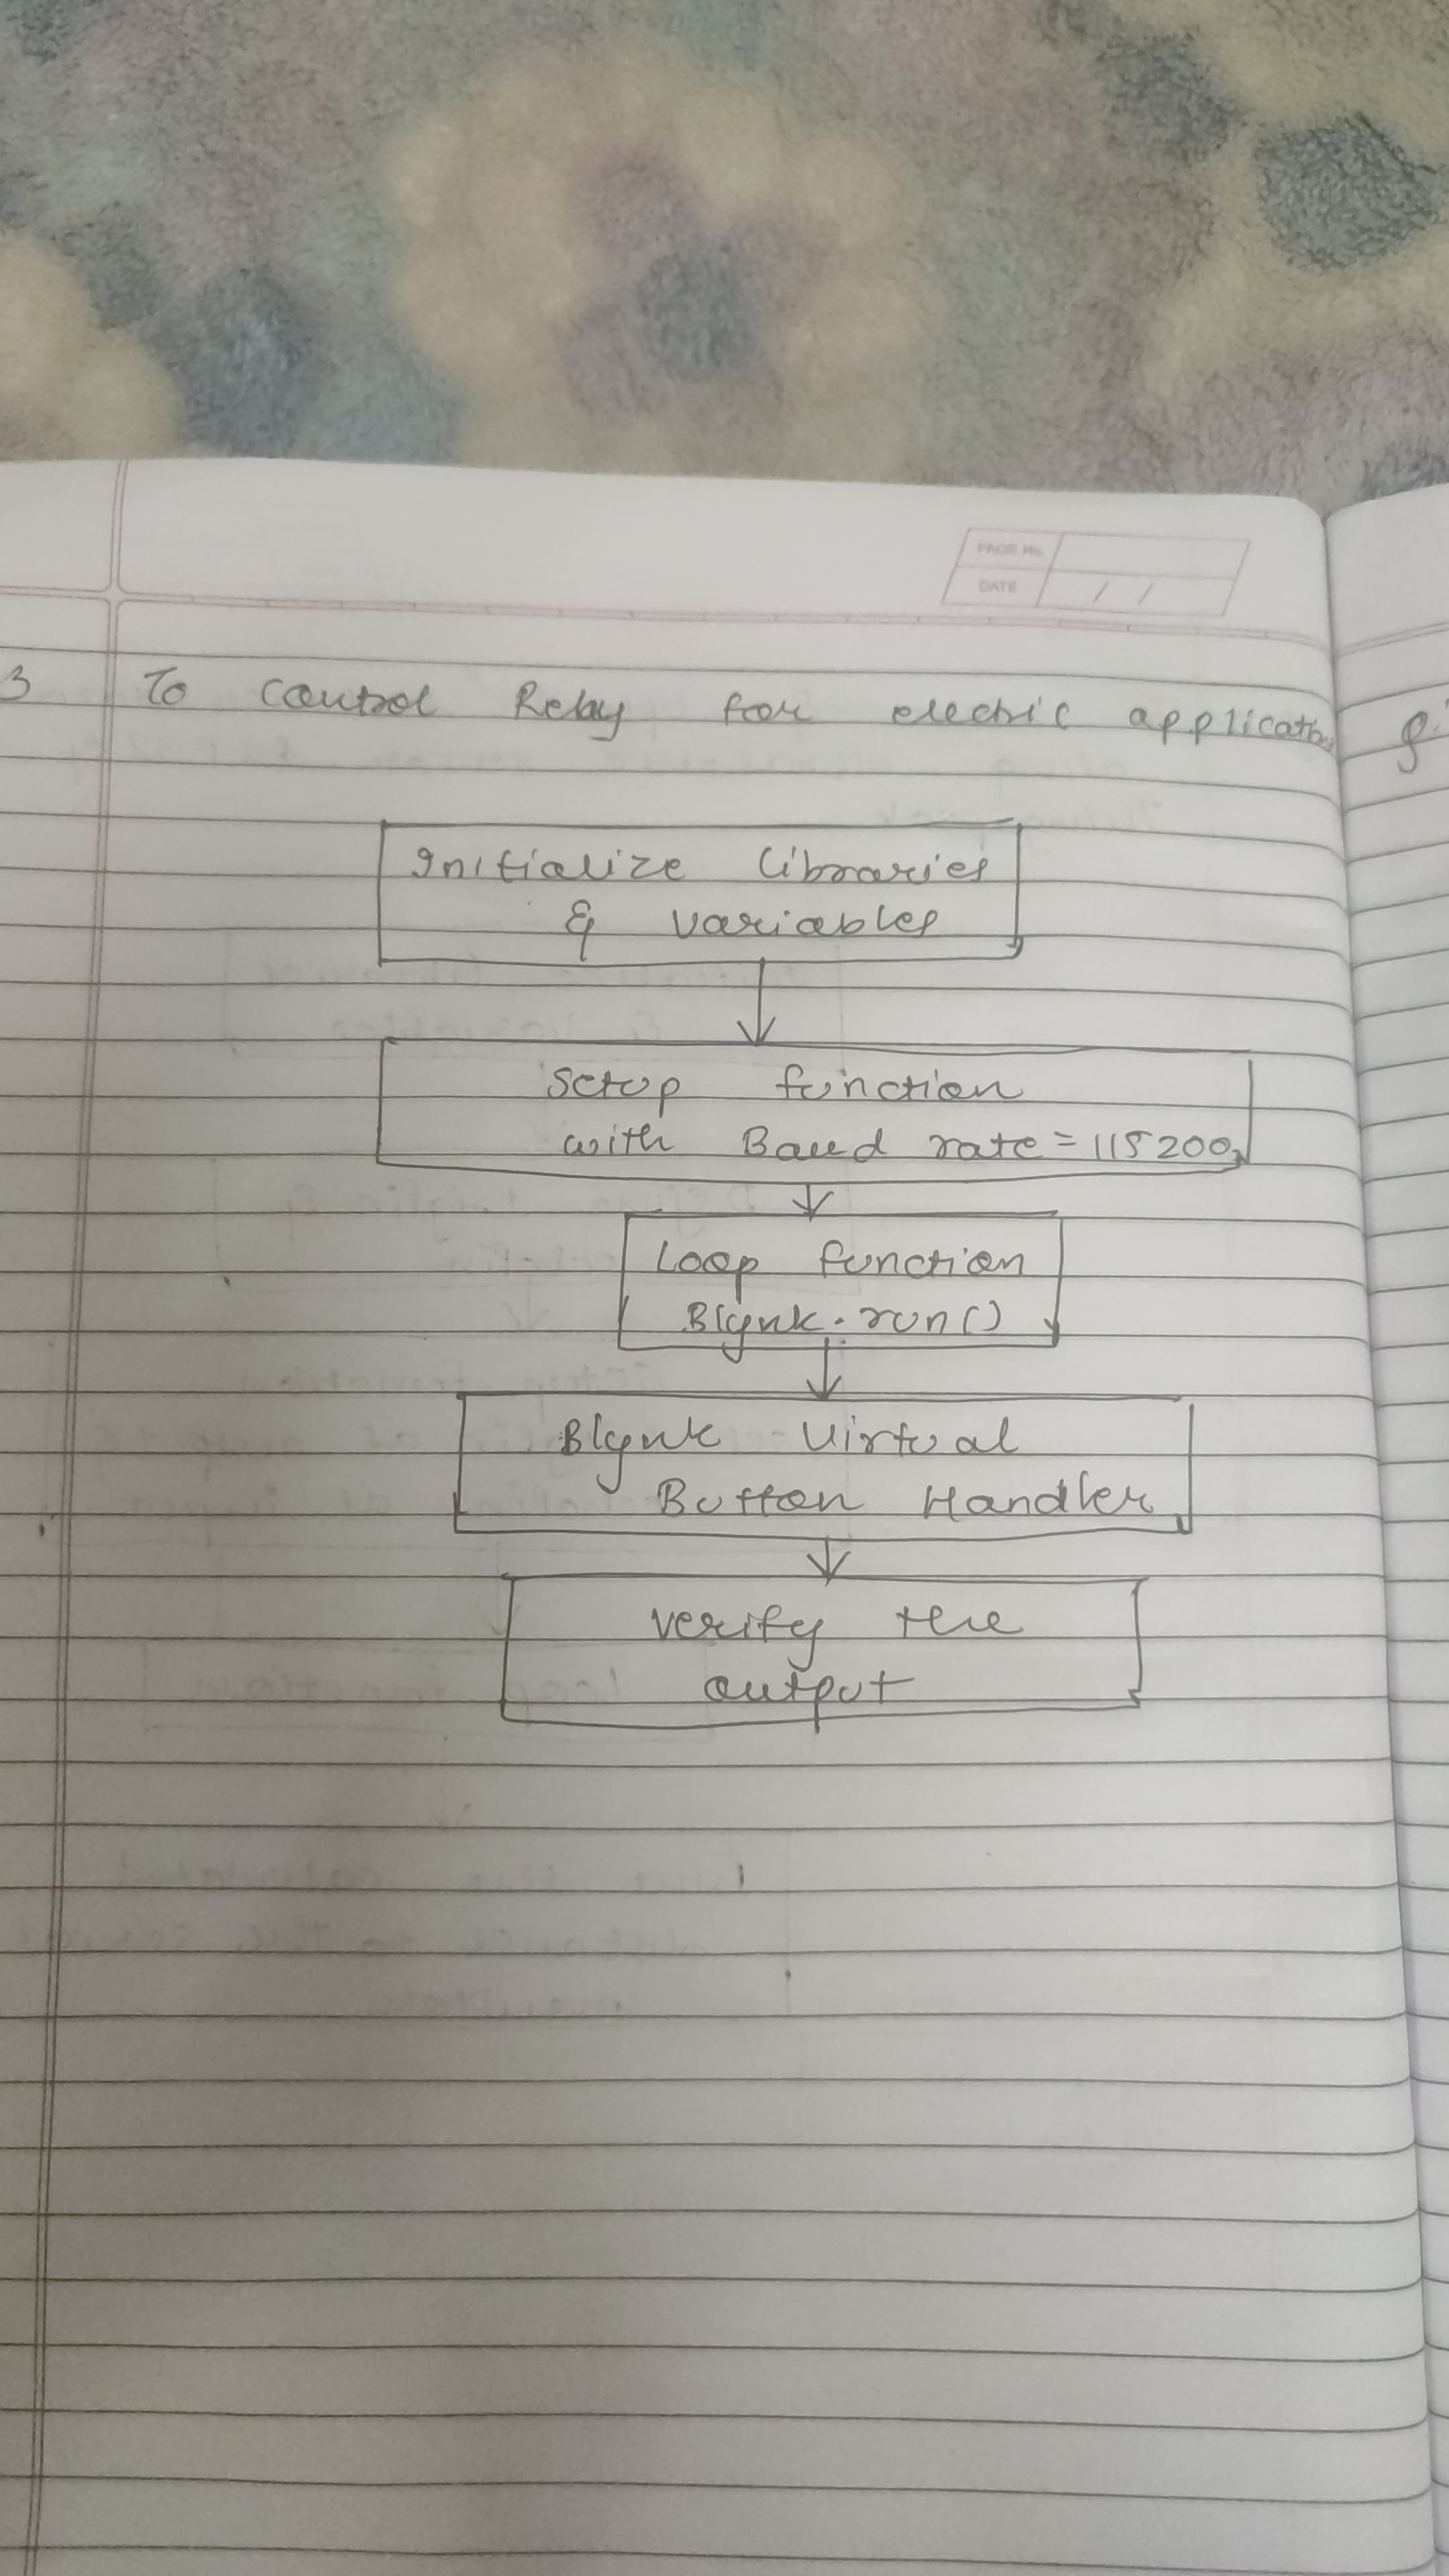 PAGE No.
DATE / /
3 To control Relay for electric application
Initialize libraries
& variables
Setup function
with Baud rate = 115200
Loop function
Blynk.run()
Blynk Virtual
Button Handler
Verify the
output